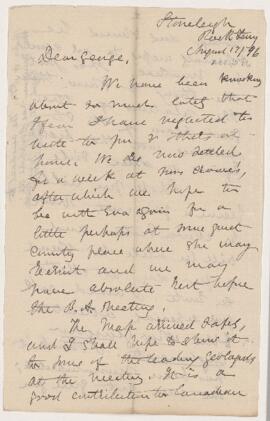 Stoneleigh
Rock Ferry
August 17/96
Dear George,
We have been knocking
about so much lately that
I fear I have neglected to
write to you & those at
home. We are now settled
for a week at
after which we hope to
be with Eva again for a
little perhaps at some quiet
country place where she may
sketch and we may
have absolute rest before
the B.A. Meeting.
The Map arrived safely,
and I shall hope to show it
to some of the leading geologists
at the Meeting. It is a
good contribution to Canadian